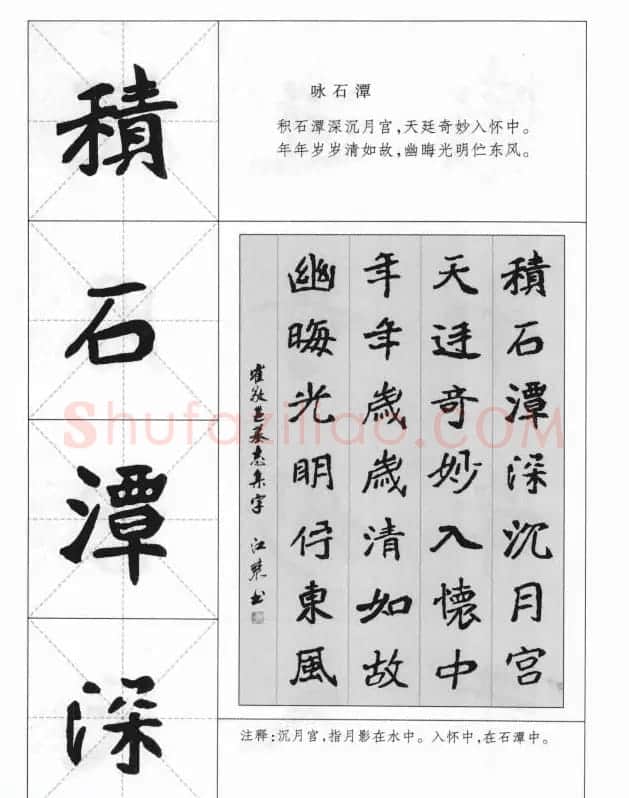 積
石
潭
深
咏石潭
积石潭深沉月宫,天廷奇妙入怀中。
年年岁岁清如故,幽晦光明伫东风。
積石潭深沉月宮
天廷奇妙入懷中
年年歲歲清如故
幽晦光明佇東風
崔敬邕墓志集字 江
书
注释:沉月宫,指月影在水中。入怀中,在石潭中。
Shufaziliao.COM